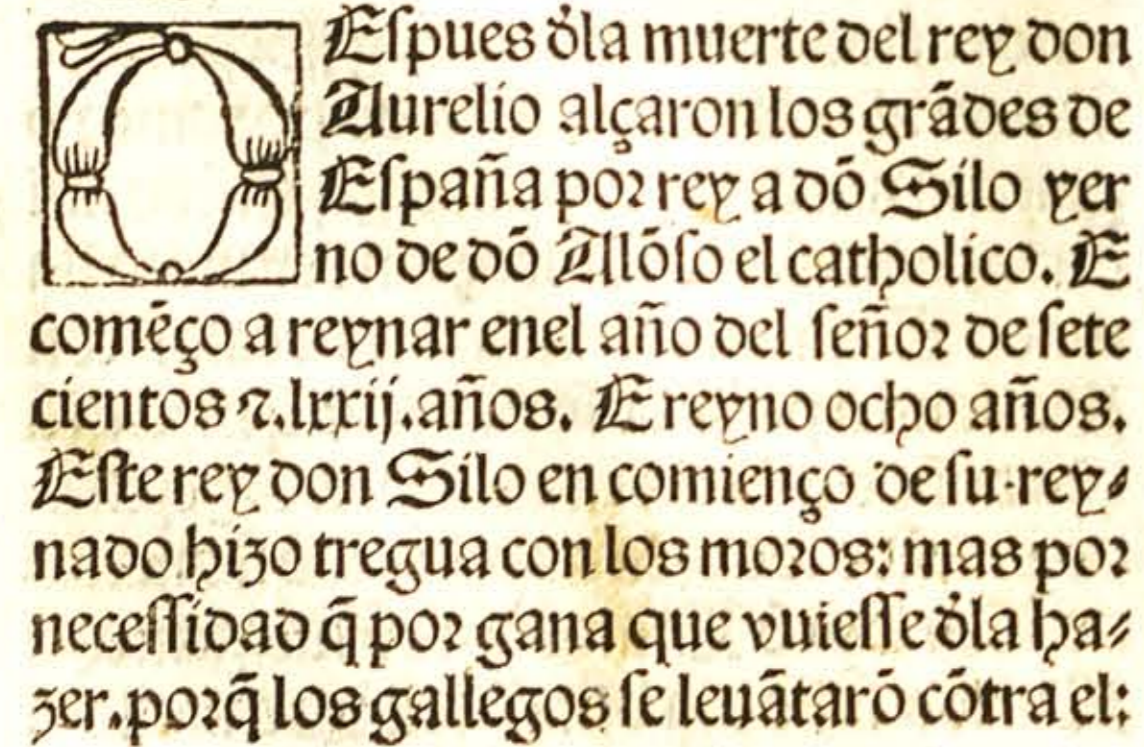 DEſpues d̉la muerte del rey don
Aurelio alçaron los grãdes de
Eſpaña por rey a dõ Silo yer
no de dõ Alõſo el catholico. E
comẽço a reynar enel año del ſeñor de ſete
cientos ⁊.lxxij.años. E reyno ocho años.
Eſte rey don Silo en comienço de ſu rey⸗
nado hizo tregua con los moros: mas por
neceſſidad q̃ por gana que vuieſſe d̉la ha⸗
zer.porq̃ los gallegos ſe leuãtarõ cõtra el: